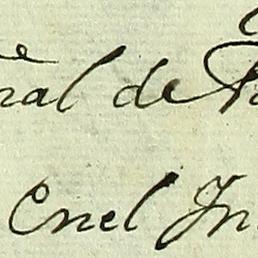 ral de
Enel In